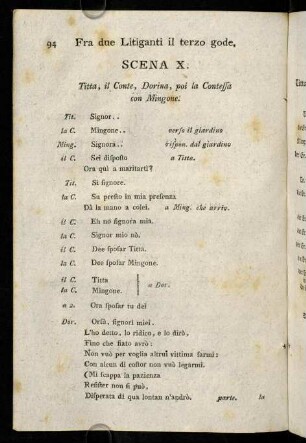 94 Fra due Litiganti il terzo gode.
SCENA X.
Titta, il Conte, Dorina, poi la Contessa
con Mingone.
Tit. Signor..
la C. Mingone.. verso il giardino
Ming. Signora.. rispon. dal giardino
il C. Sei disposto a Titta.
Ora quì a maritarti?
Tit. Si signore.
la C. Su presto in mia presenza
Dà la mano a colei. a Ming. che arriv.
il C. Eh nò signora mia.
la C. Signor mio nò.
il C. Dee sposar Titta.
la C. Dee sposar Mingone.
il C. Titta
la C. Mingone. a Dor.
a 2. Ora sposar tu dei
Dor. Orsù, signori miei.
L'ho detto, lo ridico, e lo dirò,
Fino che fiato avrò:
Non vuò per voglia altrui vittima farmi:
Con alcun di costor non vuò legarmi.
(Mi scappa la pazienza
Resister non si può,
Disperata di qua lontan n'andrò. parte. la